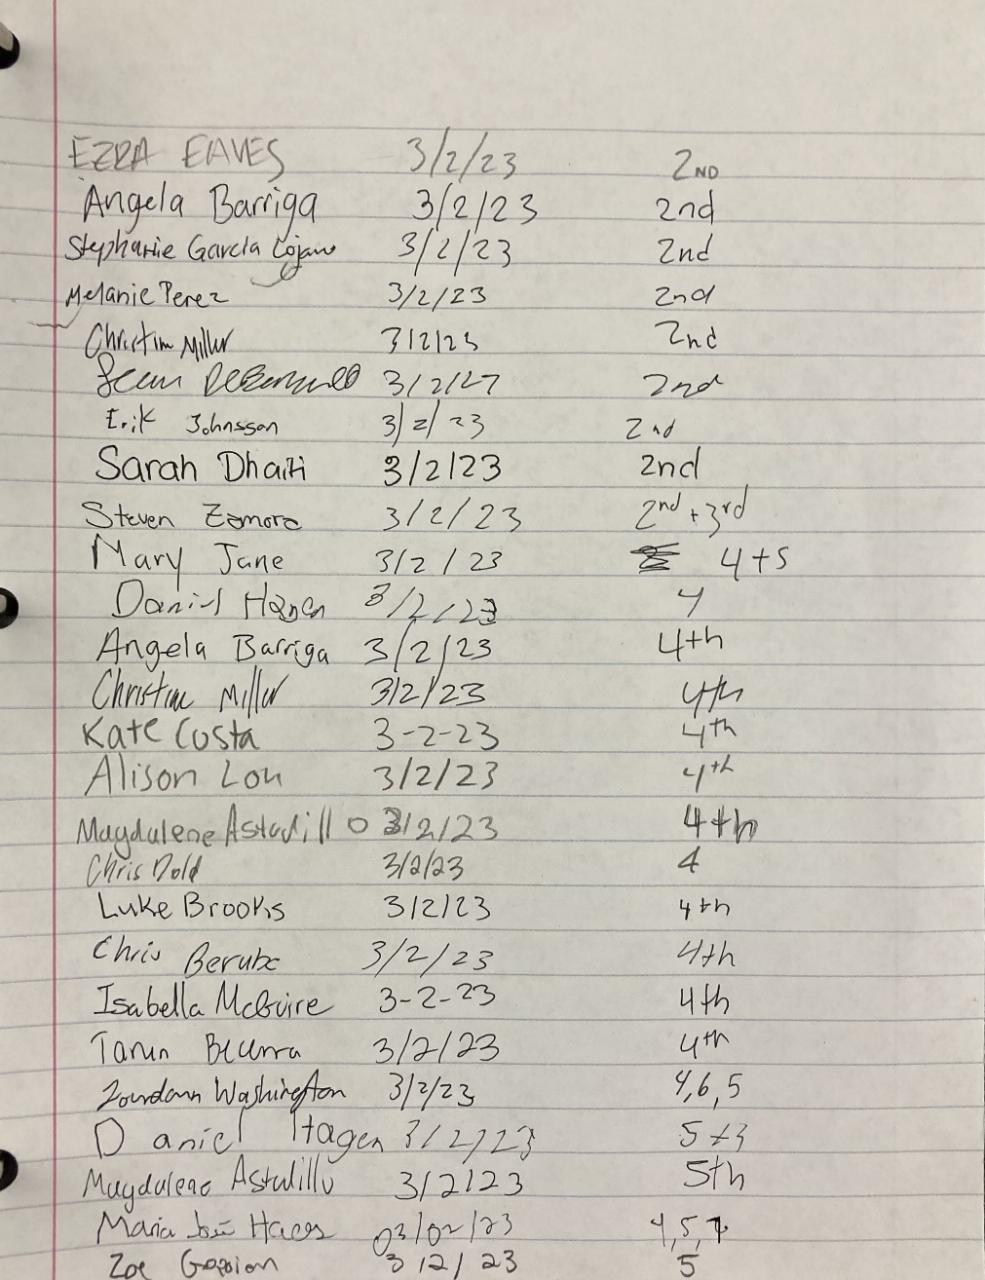 EZRA EAVES 3/2/23 2ND
Angela Barriga 3/2/23 2nd
Stephanie Garcia 3/2/23 2nd
Melanie Perez 3/2/23 2nd
Christine Miller 3/2/23 2nd
3/2/27 2nd
Erik Johnsson 3/2/23 2nd
Sarah Dhaiti 3/2/23 2nd
Steven Zamora 3/2/23 2nd + 3rd
Mary Jane 3/2/23 4+5
Daniel Hagen 3/2/23 4
Angela Barriga 3/2/23 4th
Christine Miller 3/2/23 4th
Kate Costa 3-2-23 4th
Alison Lou 3/2/23 4th
Magdalene Astudillo 3/2/23 4th
Chris Dold 3/2/23 4
Luke Brooks 3/2/23 4th
Chris Berube 3/2/23 4th
Isabella McGuire 3-2-23 4th
Tarun 3/2/23 4th
Washington 3/2/23 4,6,5
Daniel Hagen 3/2/23 5
Magdalene Astudillo 3/2/23 5th
Maria José 03/02/23 4,5,7
Zoe 3/2/23 5